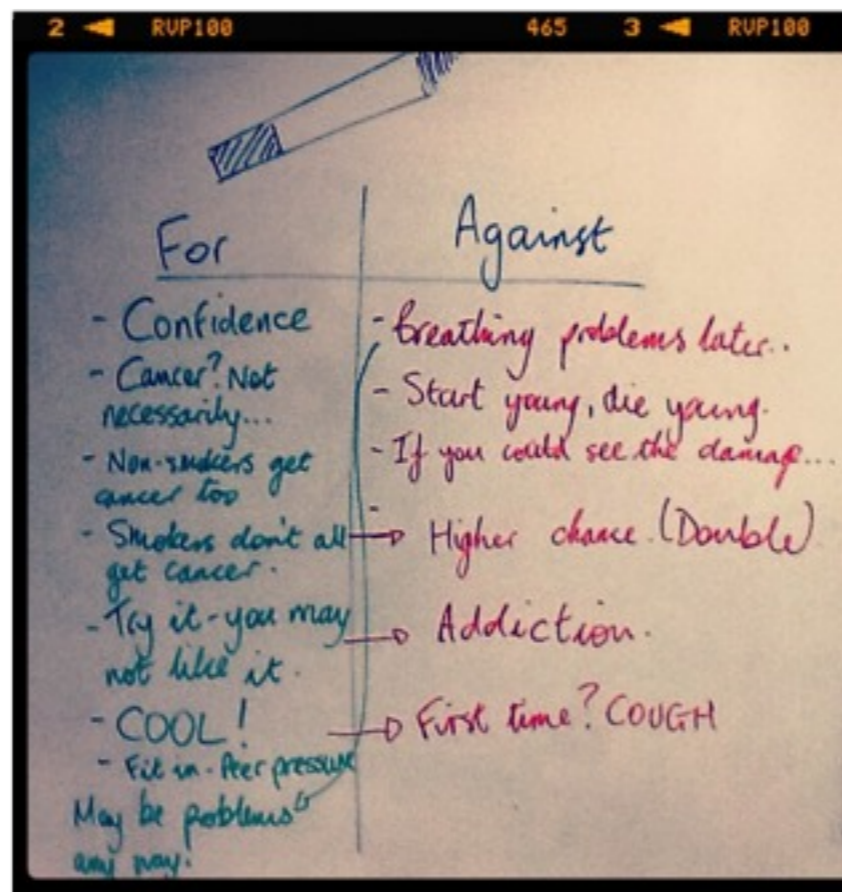 2 RVP100 465 3 RVP100
For
- Confidence
- Cancer? Not
necessarily...
- Non-smokers get
cancer too
- Smokers don't all
get cancer.
- Try it - you may
not like it.
- COOL!
- Fit in - Peer pressure
May be problems
any way.
Against
- Breathing problems later..
- Start young, die young.
- If you could see the damage...
-
Higher chance. (Double)
Addiction.
First time? COUGH